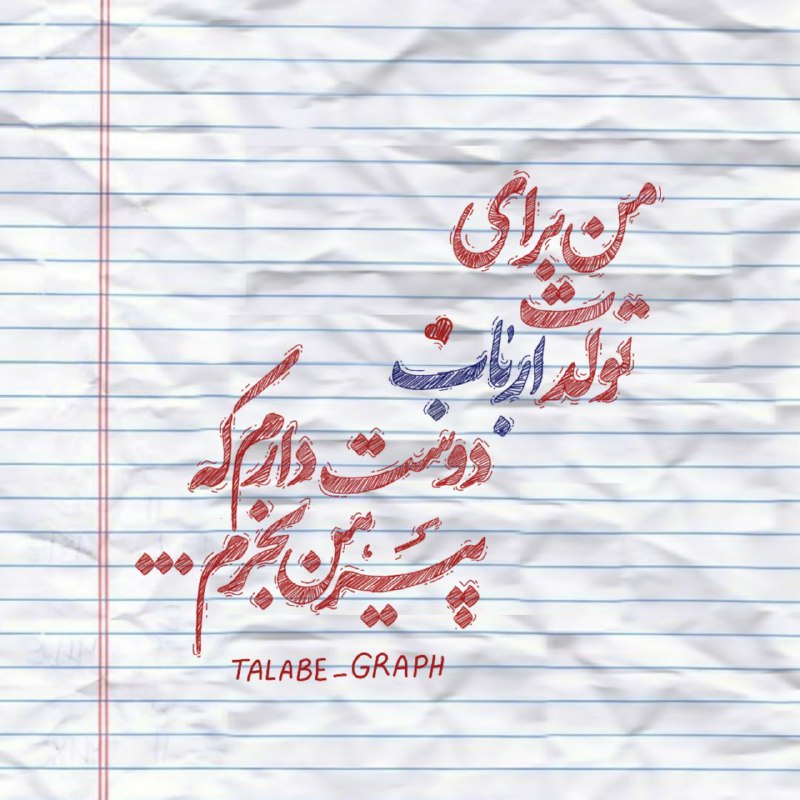 من برای
تولدت ارباب
دوست دارم که
پیرهن بخرم ...
TALABE_GRAPH